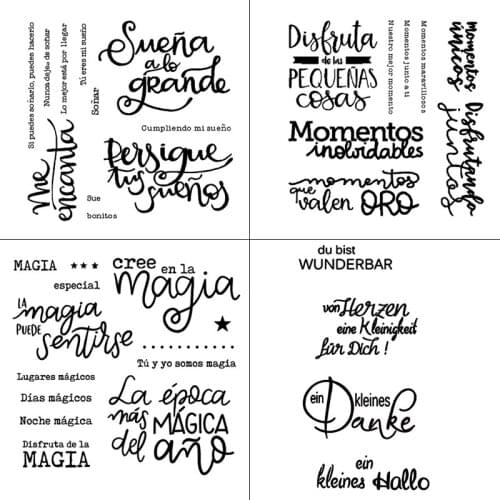 Si puedes soñarlo, puedes hacerlo
Nunca dejes de soñar
Lo mejor está por llegar
Tú eres mi sueño
Soñar
Sueña
a lo
grande
Cumpliendo mi sueño
Me
encanta
Persigue
tus
sueños
Sue
bonitos
Disfruta
de las
PEQUEÑAS
cosas
Nuestro mejor momento
Momentos junto a ti
Momentos maravillosos
momentos
únicos
Momentos
inolvidables
Disfrutando
juntos
momentos
que
valen ORO
MAGIA
especial
cree en la
magia
LA
magia
PUEDE
sentirse
Tú y yo somos magia
Lugares mágicos
Días mágicos
Noche mágica
Disfruta de la
MAGIA
La época
más MÁGICA
del año
du bist
WUNDERBAR
von Herzen
eine Kleinigkeit
für Dich !
ein kleines
Danke
ein
kleines Hallo